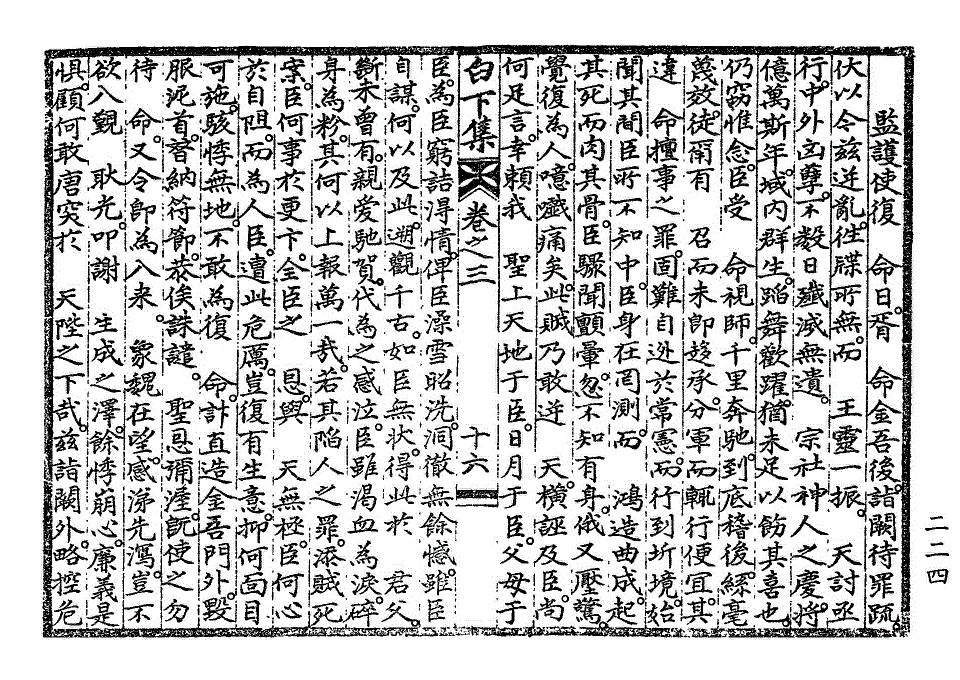 監護使復 命日。胥 命金吾後。詣闕待罪疏。
伏以令玆逆亂。往牒所無。而 王靈一振。 天討亟
行。中外凶孽。不數日殲滅無遺。 宗社神人之慶。將
億萬斯年。域內群生。蹈舞歡躍。猶未足以飾其喜也。
仍竊惟念。臣受 命視師。千里奔馳。到底稽後。絲毫
蔑效。徒爾有 召而未卽趍承。分軍而輒行便宜。其
違 命擅事之罪。固難自逃於常憲。而行到圻境。始
聞其間臣所不知中。臣身在罔測。而 鴻造曲成。起
其死而肉其骨。臣驟聞顫暈。忽不知有身。俄又壓驚
覺復爲人。噫嚱痛矣。此賊乃敢逆 天。橫誣及臣。尙
何足言。幸賴我 聖上天地于臣。日月于臣。父母于
白下集 卷之三 十六
臣。爲臣窮詰得情。俾臣澡雪昭洗。洞徹無餘憾。雖臣
自謀。何以及此。遡觀千古。如臣無狀。得此於 君父。
斷未曾有。親愛馳賀。代爲之感泣。臣雖渴血爲淚。碎
身爲粉。其何以上報萬一哉。若其陷人之罪。添賊死
案。臣何事於更卞。全臣之 恩。與 天無極。臣何心
於自阻。而爲人臣。遭此危厲。豈復有生意。抑何面目
可施。駭悸無地。不敢爲復 命計。直造金吾門外。毀
服泥首。替納符節。恭俟誅譴。 聖恩彌渥。旣使之勿
待 命。又令卽爲入來。 象魏在望。感涕先瀉。豈不
欲入覲 耿光。叩謝 生成之澤。餘悸崩心。廉義是
惧。顧何敢唐突於 天陛之下哉。玆詣闕外。略控危
二二四